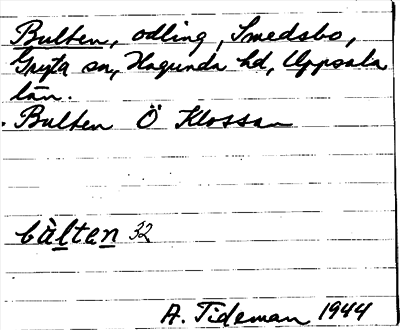 Bulten, odling, Smedsbo,
Gryta sn, Hagunda hd, Uppsala
län.
Bulten Ö Klossan
bùlten 32
A. Tideman 1944